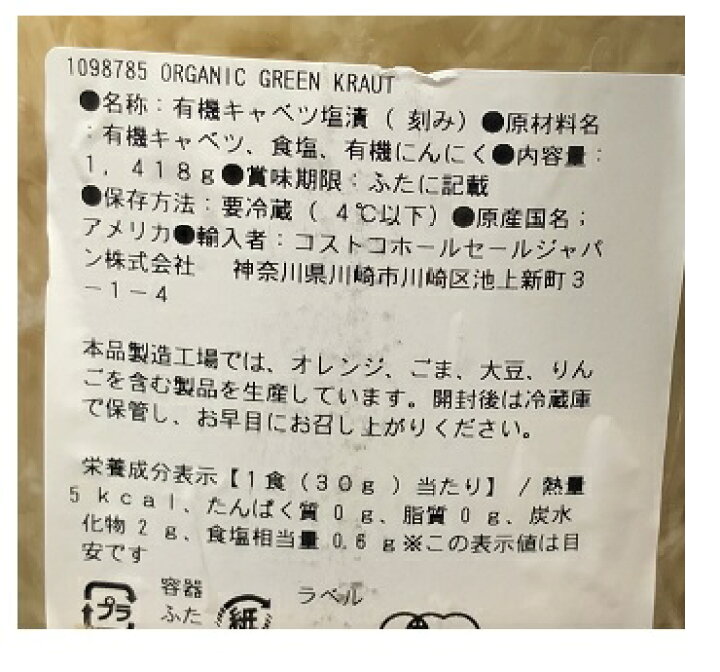 1098785 ORGANIC GREEN KRAUT
●名称：有機キャベツ塩漬（刻み）●原材料名
：有機キャベツ、食塩、有機にんにく●内容量：
1，418g●賞味期限：ふたに記載
●保存方法：要冷蔵（4℃以下）●原産国名；
アメリカ●輸入者：コストコホールセールジャパ
ン株式会社　神奈川県川崎市川崎区池上新町3
－1－4
本品製造工場では、オレンジ、ごま、大豆、りん
ごを含む製品を生産しています。開封後は冷蔵庫
で保管し、お早目にお召し上がりください。
栄養成分表示【1食（30g）当たり】／熱量
5kcal、たんぱく質0g、脂質0g、炭水
化物2g、食塩相当量0.6g※この表示値は目
安です
プラ
容器
ふた
紙
ラベル